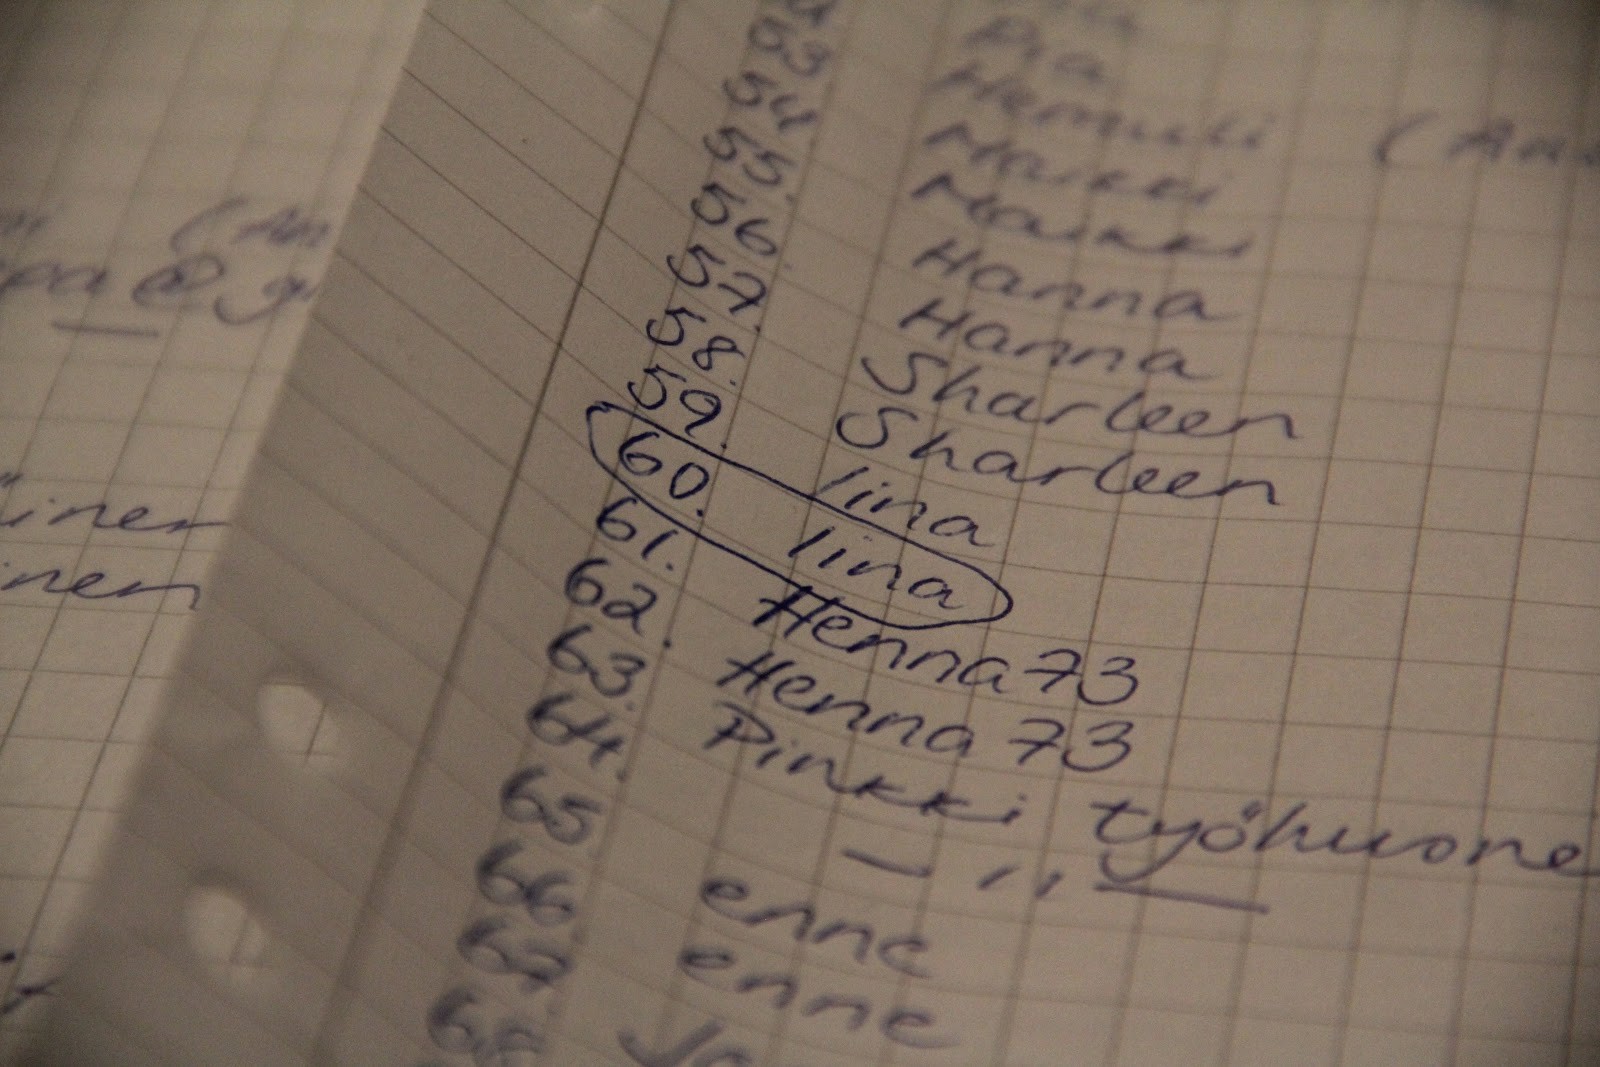 (An
pa@g
inen
inen
Pia
Hemuli (An
53 Maikki
54 Maikki
55. Hanna
56. Hanna
57. Sharleen
58. Sharleen
59. Iina
60. Iina
61. Henna73
62. Henna73
63. Pinkki työhuone
64. — '' —
65 enne
66 enne
67 Jo
68